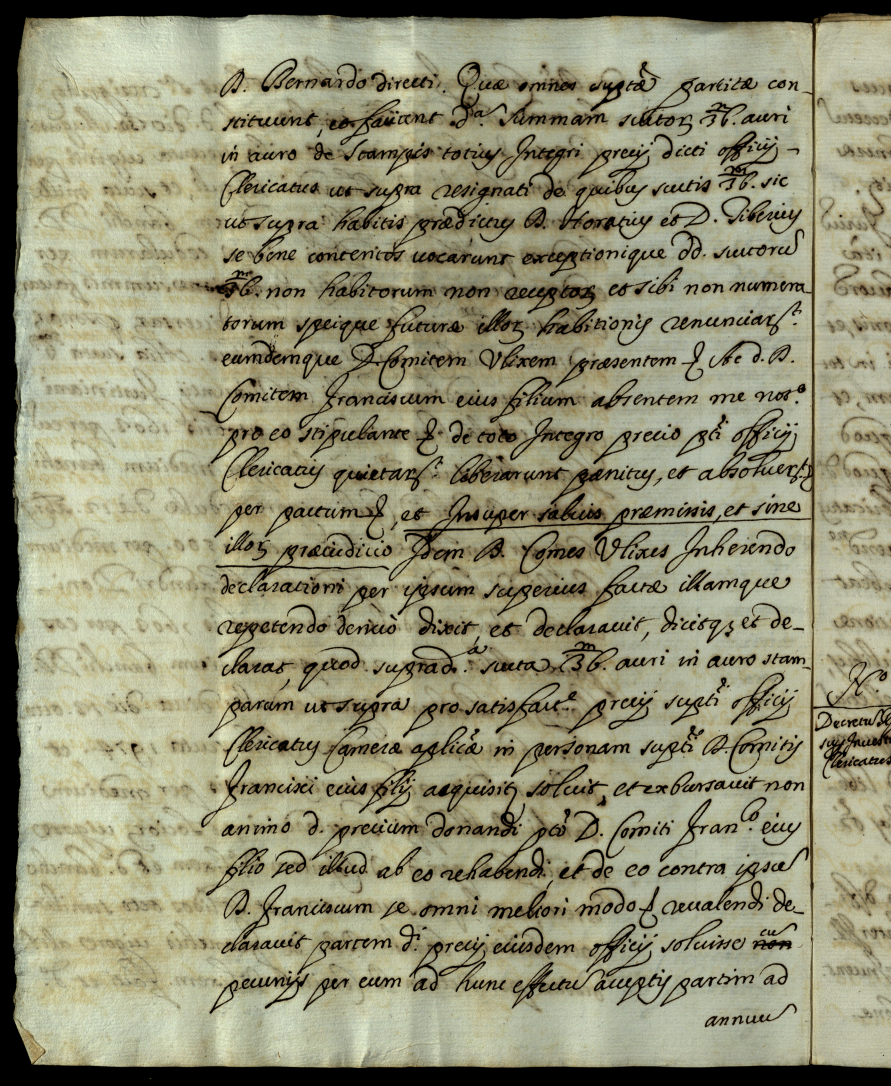 D. Bernardo directi. Quæ omnes suptæ partitæ con-
stituunt, et faciunt d.ª summam scutor. 36.m auri
in auro de stampis totius Integri precij dicti officij
Clericatus ut supra resignati de quibus scutis 36.m sic
ut supra habitis prædictus D. Horatius et D. Tiberius
se bene contentos uocarunt exceptionique dd. scutorũ
36.m non habitorum non receptor. et sibi non numera-
torum speique futuræ illor. habitionis renunciar.t
eumdemque D. Comitem Ulixem præsentem & d. D.
Comitem Franciscum eius filium absentem me not.º
pro eo stipulante & de toto Integro precio pti officij
Clericatus quietar.t liberarunt pænitus, et absoluer.t
per pactum &, et Insuper saluis præmissis, et sine
illor. præiudicio Idem D. Comes Ulixes Inherendo
declarationi per ipsum superius factæ illamque
repetendo denuò dixit, et declarauit, dicitq3 et de-
clarat, quod suprad.ª scuta 36.m auri in auro stam-
parum ut supra pro satisfact.e precij supti officij
Clericatus Cameræ aplicæ in personam supti D. Comitis
Francisci eius filij acquisiti soluit, et exbursauit non
animo d. precium donandi pto D. Comiti Fran.co eius
filio sed illud ab eo rehabendi, et de eo contra ipsũ
D. Franciscum se omni meliori modo & reualendi de-
clarauit partem d.i precij eiusdem officij soluisse non cũ
pecunijs per eum ad hunc effectũ acceptis partim ad
annuũ
N.º
Decretũ
Clericatus